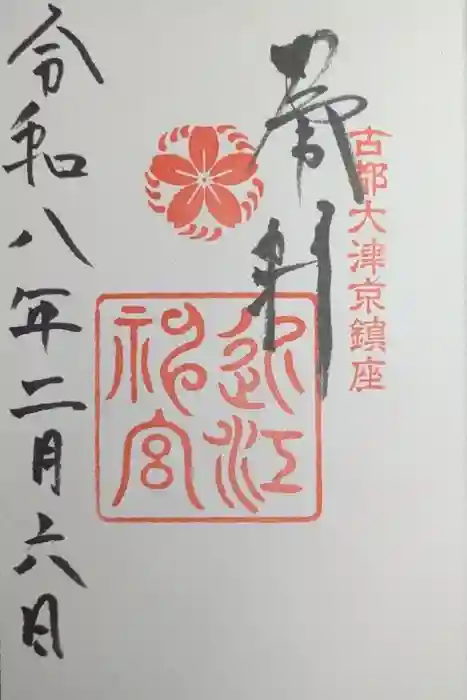 古都大津京鎮座
奉拝
近江神宮
令和八年二月六日